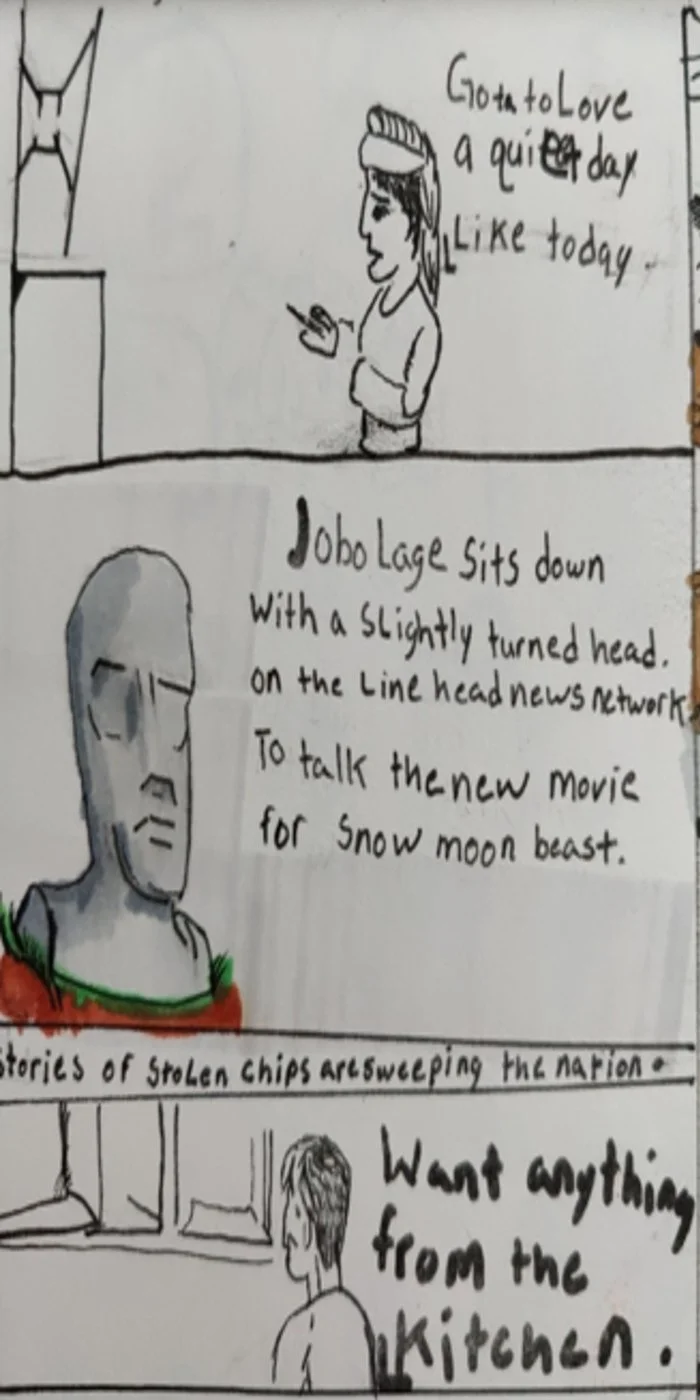 Gota to Love
a quiet day
Like today.
Jobo Lage Sits down
With a Slightly turned head.
on the Line head news network
To talk the new movie
for Snow moon beast.
Stories of Stolen Chips are sweeping the nation.
Want anything
from the
Kitchen.